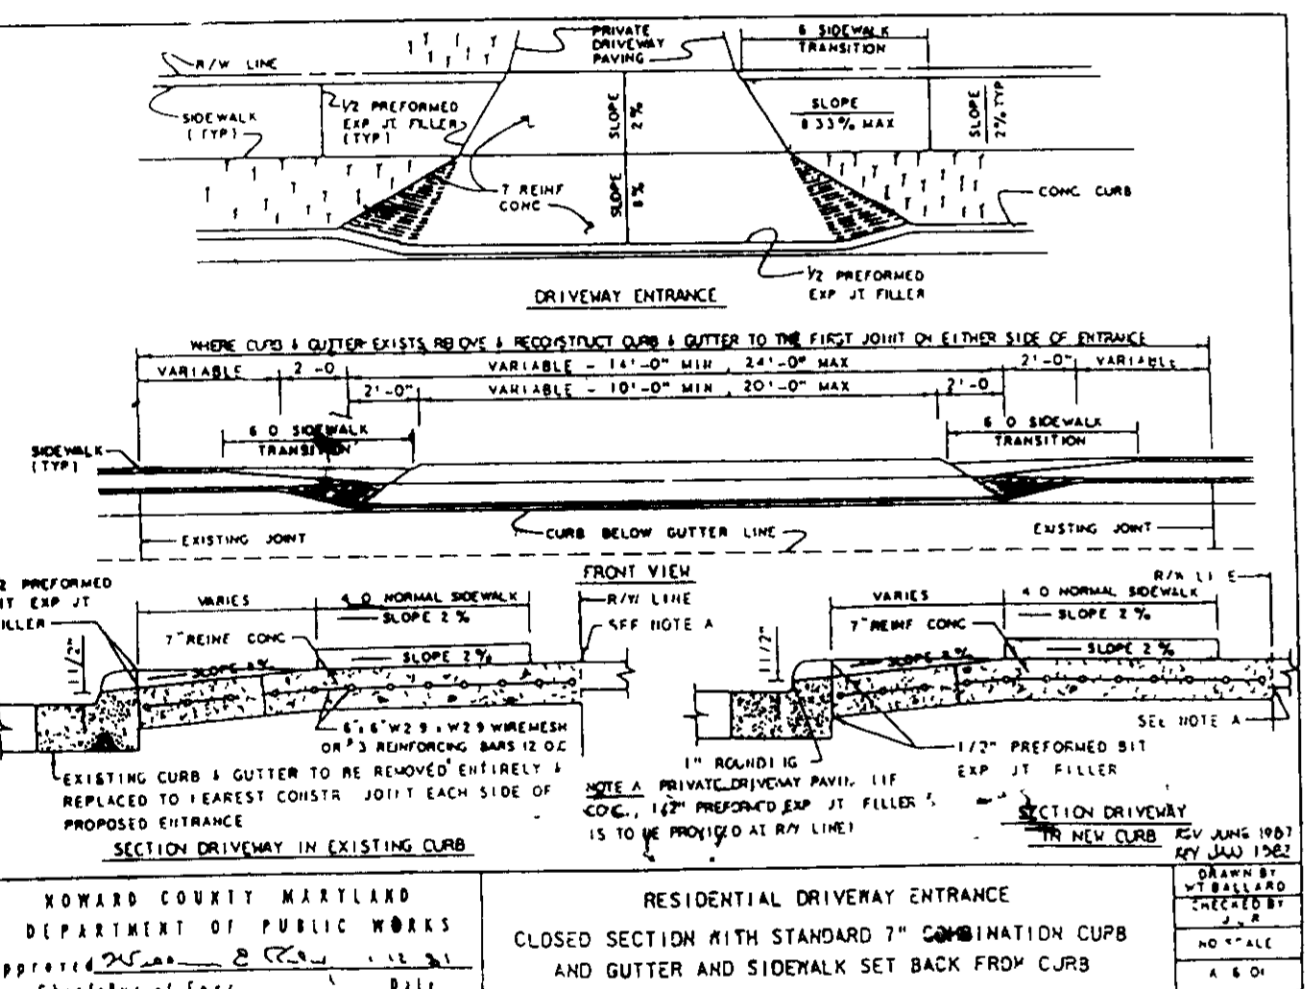 PRIVATE
DRIVEWAY
PAVING
6 SIDEWALK
TRANSITION
R/W LINE
SIDEWALK
(TYP)
1/2 PREFORMED
EXP JT FILLER
(TYP)
SLOPE
2%
SLOPE
8 33% MAX
SLOPE
2% TYP
7 REINF
CONC
SLOPE
8%
CONC CURB
1/2 PREFORMED
EXP JT FILLER
DRIVEWAY ENTRANCE
WHERE CURB & GUTTER EXISTS REMOVE & RECONSTRUCT CURB & GUTTER TO THE FIRST JOINT ON EITHER SIDE OF ENTRANCE
VARIABLE 2'-0 VARIABLE - 14'-0" MIN, 24'-0" MAX 2'-0" VARIABLE
2'-0" VARIABLE - 10'-0" MIN, 20'-0" MAX 2'-0
6 0 SIDEWALK
TRANSITION
6 0 SIDEWALK
TRANSITION
SIDEWALK
(TYP)
CURB BELOW GUTTER LINE
EXISTING JOINT
EXISTING JOINT
FRONT VIEW
2 PREFORMED
IT EXP JT
ILLER
VARIES
4 0 NORMAL SIDEWALK
SLOPE 2%
R/W LINE
SEE NOTE A
7" REINF CONC
SLOPE 2%
SLOPE 8%
1 1/2"
6"x6" W2 9 x W2 9 WIREMESH
OR #3 REINFORCING BARS 12 O.C
EXISTING CURB & GUTTER TO BE REMOVED ENTIRELY &
REPLACED TO NEAREST CONSTR JOINT EACH SIDE OF
PROPOSED ENTRANCE
SECTION DRIVEWAY IN EXISTING CURB
R/W LINE
VARIES
4 0 NORMAL SIDEWALK
SLOPE 2%
7" REINF CONC
SLOPE 2%
SLOPE 8%
1 1/2"
SEE NOTE A
1" ROUNDING
1/2" PREFORMED BIT
EXP JT FILLER
NOTE A PRIVATE DRIVEWAY PAVING (IF
CONC., 1/2" PREFORMED EXP JT FILLER
IS TO BE PROVIDED AT R/W LINE)
SECTION DRIVEWAY
IN NEW CURB
REV JUNE 1987
REV JAN 1982
HOWARD COUNTY MARYLAND
DEPARTMENT OF PUBLIC WORKS
pproved
Date
RESIDENTIAL DRIVEWAY ENTRANCE
CLOSED SECTION WITH STANDARD 7" COMBINATION CURB
AND GUTTER AND SIDEWALK SET BACK FROM CURB
DRAWN BY
WT BALLARD
CHECKED BY
NO SCALE
A 6 01